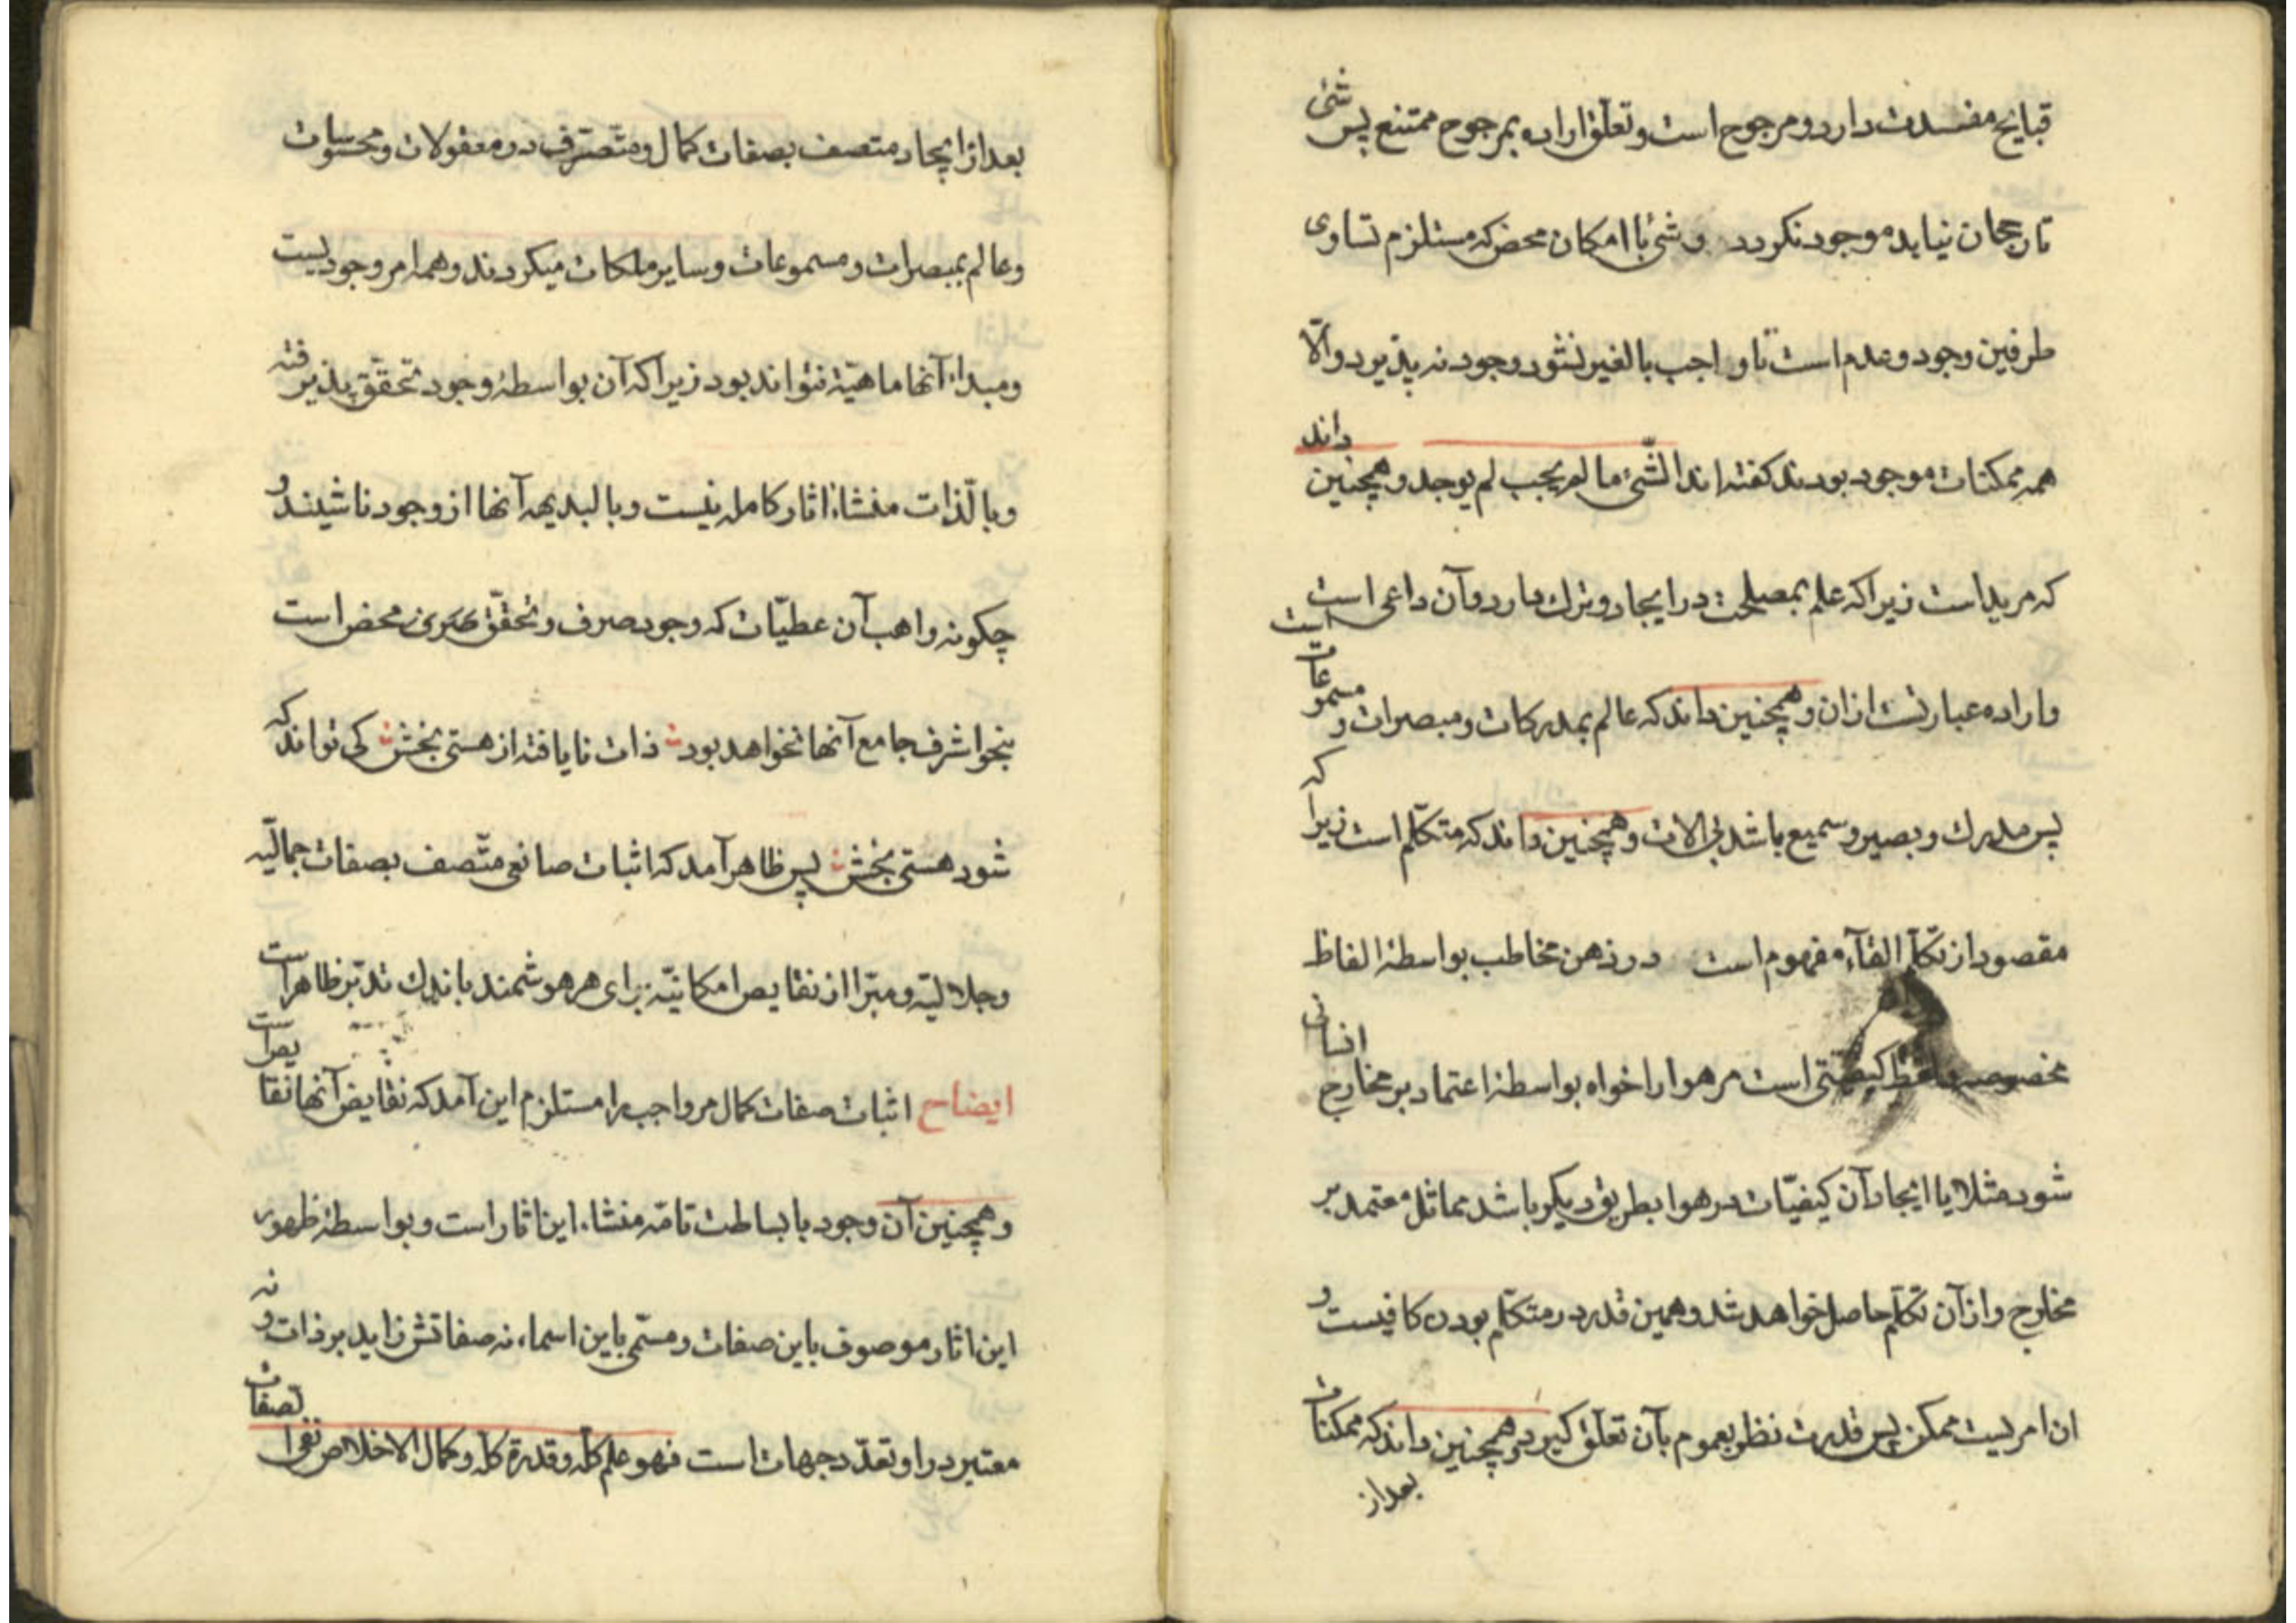 قبایح مفسدت دارد و مرجوح است و تعلّق اراده بمرجوح ممتنع پس شئ
تا رجحان نیابد موجود نکردد و شئ با امکان محض که مستلزم تساوی
طرفین وجود و عدم است تا واجب بالغیر نشود وجود نه پذیرد والّا
همه ممکنات موجود بودند کفته اند الشّئ ما لم یجب لم یوجد و همچنین داند
که مرید است زیرا که علم بمصلحت در ایجاد و ترك دارد و آن داعی است
و اراده عبارتست ازان و همچنین داند که عالم بمدرکات و مبصرات و مسموعات است
پس مدرك و بصیر و سمیع باشد بی الات و همچنین داند که متکلّم است زیرا که
مقصود از تکلّم القآء مفهوم است در ذهن مخاطب بواسطهٔ الفاظ
مخصوصه کیفیتی است مر هوا را خواه بواسطهٔ اعتماد بر مخارج انسانی
شود مثلا یا ایجاد آن کیفیّات در هوا بطریق دیکر باشد مماثل معتمد بر
مخارج و از آن تکلّم حاصل خواهد شد و همین قدر در متکلّم بودن کافیست و
ان امریست ممکن پس قدرت نظر بعموم بآن تعلّق کیرد و همچنین داند که ممکنات
بعد از
بعد از ایجاد متصف بصفات کمال و متصرّف در معقولات و محسوسات
و عالم بمبصرات و مسموعات و سایر ملکات میکردند و همه امر وجودیست
و مبداء آنها ماهیّة نتواند بود زیرا که آن بواسطهٔ وجود تحقق پذیرفته
و با لذّات منشاء اثار کامله نیست و بالبدیهه آنها از وجود ناشیند و
چکونه واهب آن عطیّات که وجود صرف و تحقّق محض است
بنحو اشرف جامع آنها نخواهد بود ذات نایافته از هستی بخش کی تواند که
شود هستی بخش پس ظاهر آمد که اثبات صانعی متّصف بصفات جمالیّه
و جلالیّه و مبرّا از نقایص امکانیّه برای هر هوشمند باندك تدبّر ظاهر است
ایضاح اثبات صفات کمال مر واجب را مستلزم این آمد که نقایض آنها نقایص است
و همچنین آن وجود با بساطت تامّه منشاء این اثار است و بواسطهٔ ظهور
این اثار موصوف باین صفات و مسمّی باین اسماء نه صفاتش زاید بر ذات و نه
معتبر در او تعدّد جهات است فهو علم کلّه و قدرة کلّه و کمال الاخلاص نفی الصفات